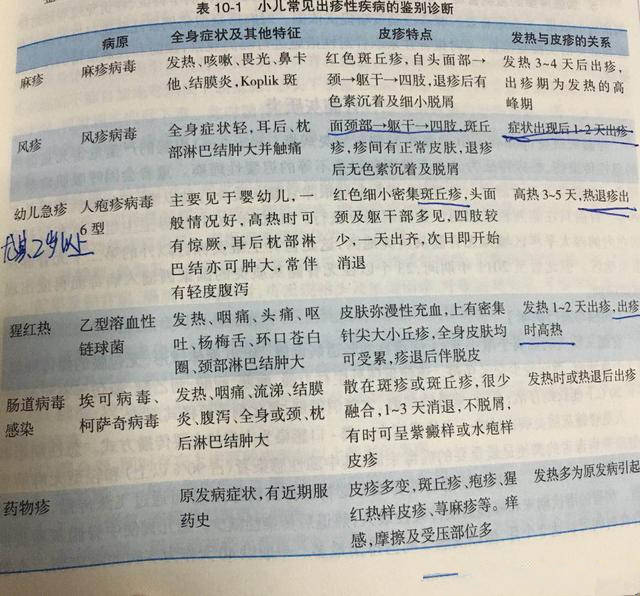 表 10-1 小儿常见出疹性疾病的鉴别诊断
病原 全身症状及其他特征 皮疹特点 发热与皮疹的关系
麻疹 麻疹病毒 发热、咳嗽、畏光、鼻卡 红色斑丘疹,自头面部→ 发热 3~4 天后出疹,
他、结膜炎,Koplik 斑 颈→躯干→四肢,退疹后有 出疹期为发热的高
色素沉着及细小脱屑 峰期
风疹 风疹病毒 全身症状轻,耳后、枕 面颈部→躯干→四肢,斑丘 症状出现后 1~2 天出疹
部淋巴结肿大并触痛 疹,疹间有正常皮肤,退疹
后无色素沉着及脱屑
幼儿急疹 人疱疹病毒 主要见于婴幼儿,一 红色细小密集斑丘疹,头面 高热 3~5 天,热退疹出
6 型 般情况好,高热时可 颈及躯干部多见,四肢较
有惊厥,耳后枕部淋 少,一天出齐,次日即开始
巴结亦可肿大,常伴 消退
有轻度腹泻
2岁以上
猩红热 乙型溶血性 发热、咽痛、头痛、呕 皮肤弥漫性充血,上有密集 发热 1~2 天出疹,出疹
链球菌 吐、杨梅舌、环口苍白 针尖大小丘疹,全身皮肤均 时高热
圈、颈部淋巴结肿大 可受累,疹退后伴脱皮
肠道病毒 埃可病毒、 发热、咽痛、流涕、结膜 散在斑疹或斑丘疹,很少 发热时或热退后出疹
感染 柯萨奇病毒 炎、腹泻、全身或颈、枕 融合,1~3 天消退,不脱屑,
后淋巴结肿大 有时可呈紫癜样或水疱样
皮疹
药物疹 原发病症状,有近期服 皮疹多变,斑丘疹、疱疹、猩 发热多为原发病引起
药史 红热样皮疹、荨麻疹等。痒
感,摩擦及受压部位多